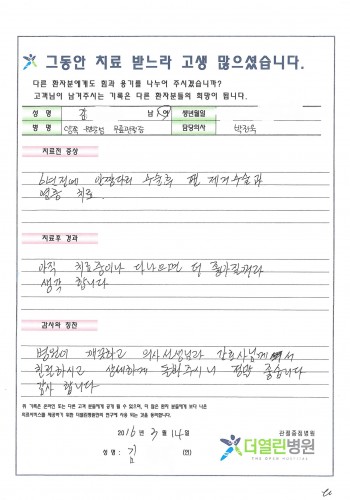 그동안 치료 받느라 고생 많으셨습니다.
다른 환자분에게도 힘과 용기를 나누어 주시겠습니까?
고객님이 남겨주시는 기록은 다른 환자분들의 희망이 됩니다.
성 명 김 남 여 생년월일
병 명 양쪽 무릎관절 담당의사 박
치료전 증상
6년전에 안짱다리 수술후 핀 제거수술과
염증 치료.
치료후 경과
아직 치료중이나 다나으면 더 좋아질거라
생각 합니다
감사와 칭찬
병원이 깨끗하고 의사선생님과 간호사님께서
친절하시고 상세하게 돌봐주시니 정말 좋습니다
감사 합니다
위 기록은 온라인 또는 다른 고객 분들에게 공개 될 수 있으며, 더 많은 환자 분들에게 보다 나은
의료서비스를 제공하기 위한 더열린병원의 연구에 사용 되는 것을 동의합니다.
2016년 3월 14일
성명 : 김 (인)
관절중점병원
더열린병원
THE OPEN HOSPITAL